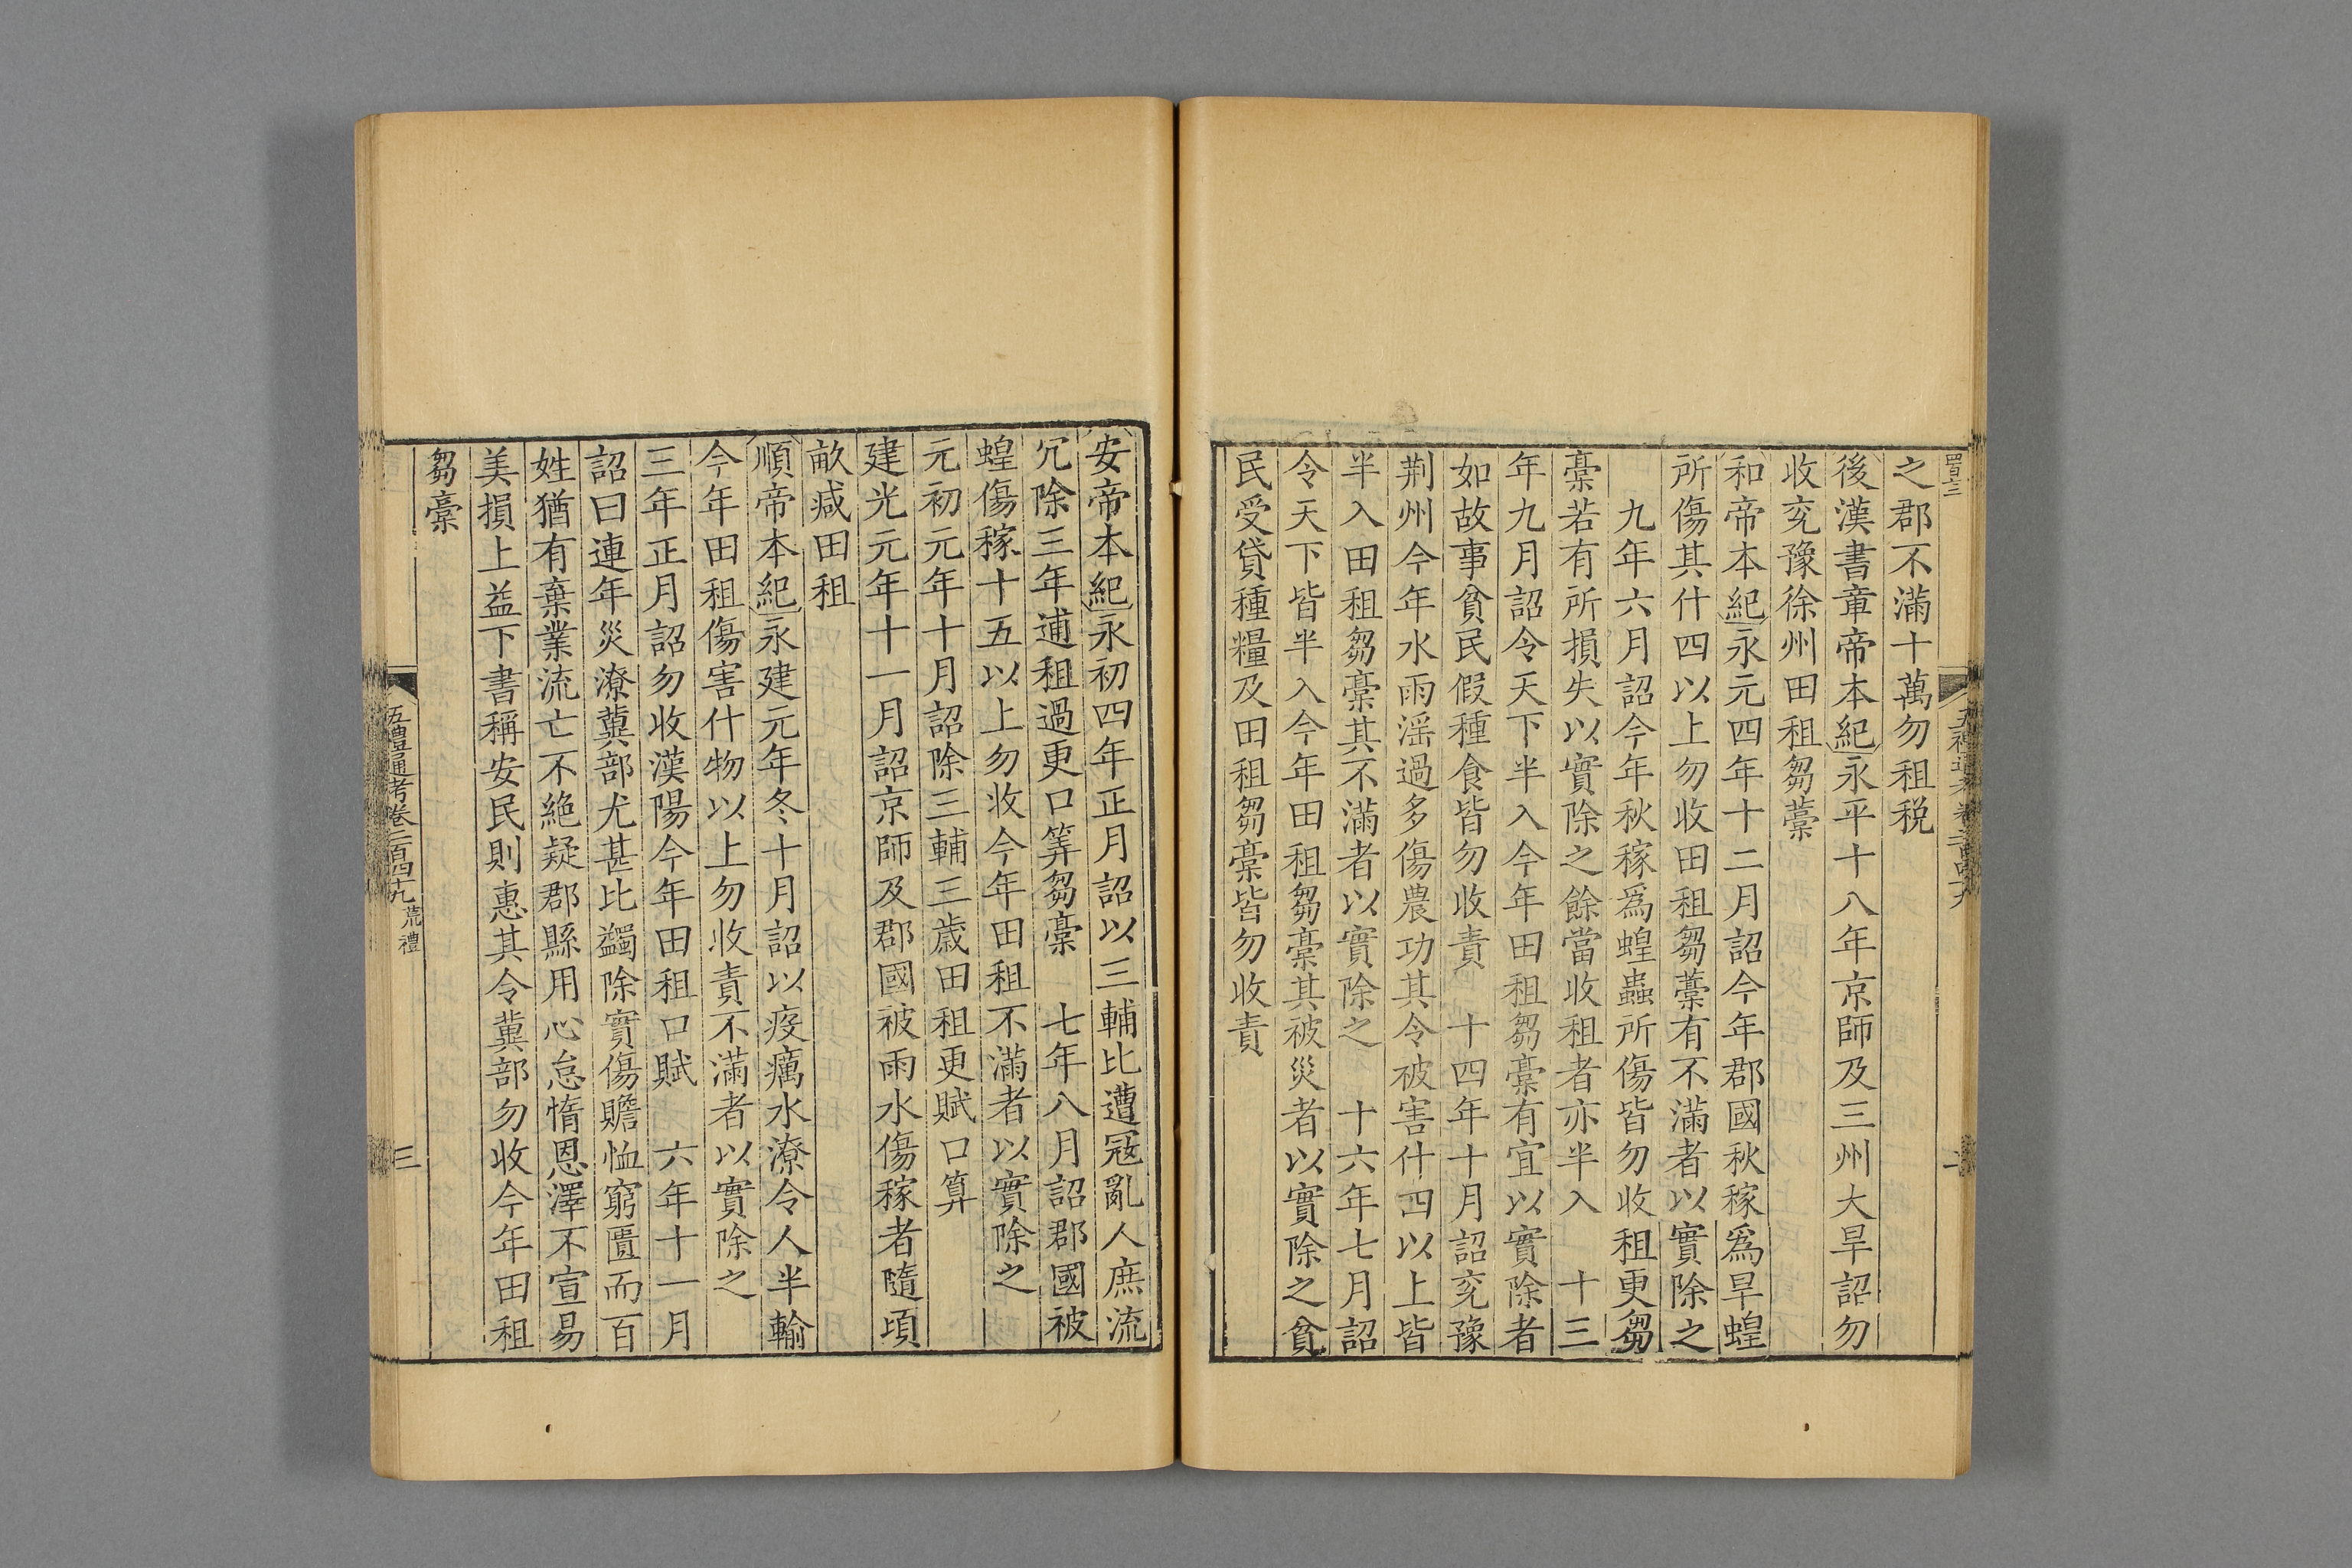 之郡不滿十萬勿租税
後漢書章帝本紀永平十八年京師及三州大旱詔勿
收兖豫徐州田租芻藁
和帝本紀永元四年十二月詔今年郡國秋稼爲旱蝗
所傷其什四以上勿收田租芻藁有不滿者以實除之
九年六月詔今年秋稼爲蝗蟲所傷皆勿收租更芻
稾若有所損失以實除之餘當收租者亦半入　十三
年九月詔令天下半入今年田租芻稾有宜以實除者
如故事貧民假種食皆勿收責　十四年十月詔兖豫
荆州今年水雨淫過多傷農功其令被害什四以上皆
半入田租芻稾其不滿者以實除之　十六年七月詔
令天下皆半入今年田租芻稾其被災者以實除之貧
民受貸種糧及田租芻稾皆勿收責
安帝本紀永初四年正月詔以三輔比遭寇亂人庶流
冗除三年逋租過更口筭芻稾　七年八月詔郡國被
蝗傷稼十五以上勿收今年田租不滿者以實除之
元初元年十月詔除三輔三歲田租更賦口算
建光元年十一月詔京師及郡國被雨水傷稼者隨頃
畝減田租
順帝本紀永建元年冬十月詔以疫癘水潦令人半輸
今年田租傷害什物以上勿收責不滿者以實除之
三年正月詔勿收漢陽今年田租口賦　六年十一月
詔曰連年災潦冀部尤甚比蠲除實傷贍恤窮匱而百
姓猶有棄業流亡不絶疑郡縣用心怠惰恩澤不宣易
美損上益下書稱安民則惠其令冀部勿收今年田租
芻稾
五禮通考卷二百四十九 荒禮
三